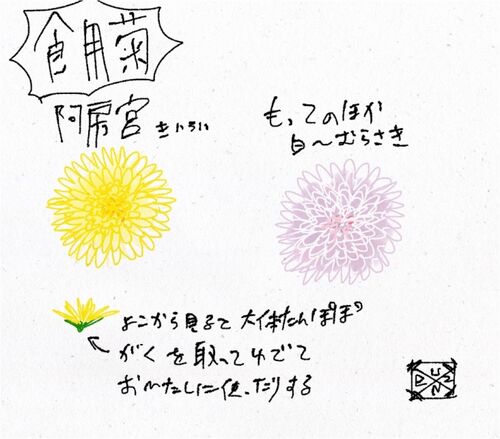 食用菊
阿房宮 きいろい
もってのほか
白〜むらさき
よこから見ると大体たんぽぽ
がくを取ってゆでて
おひたしに使ったりする